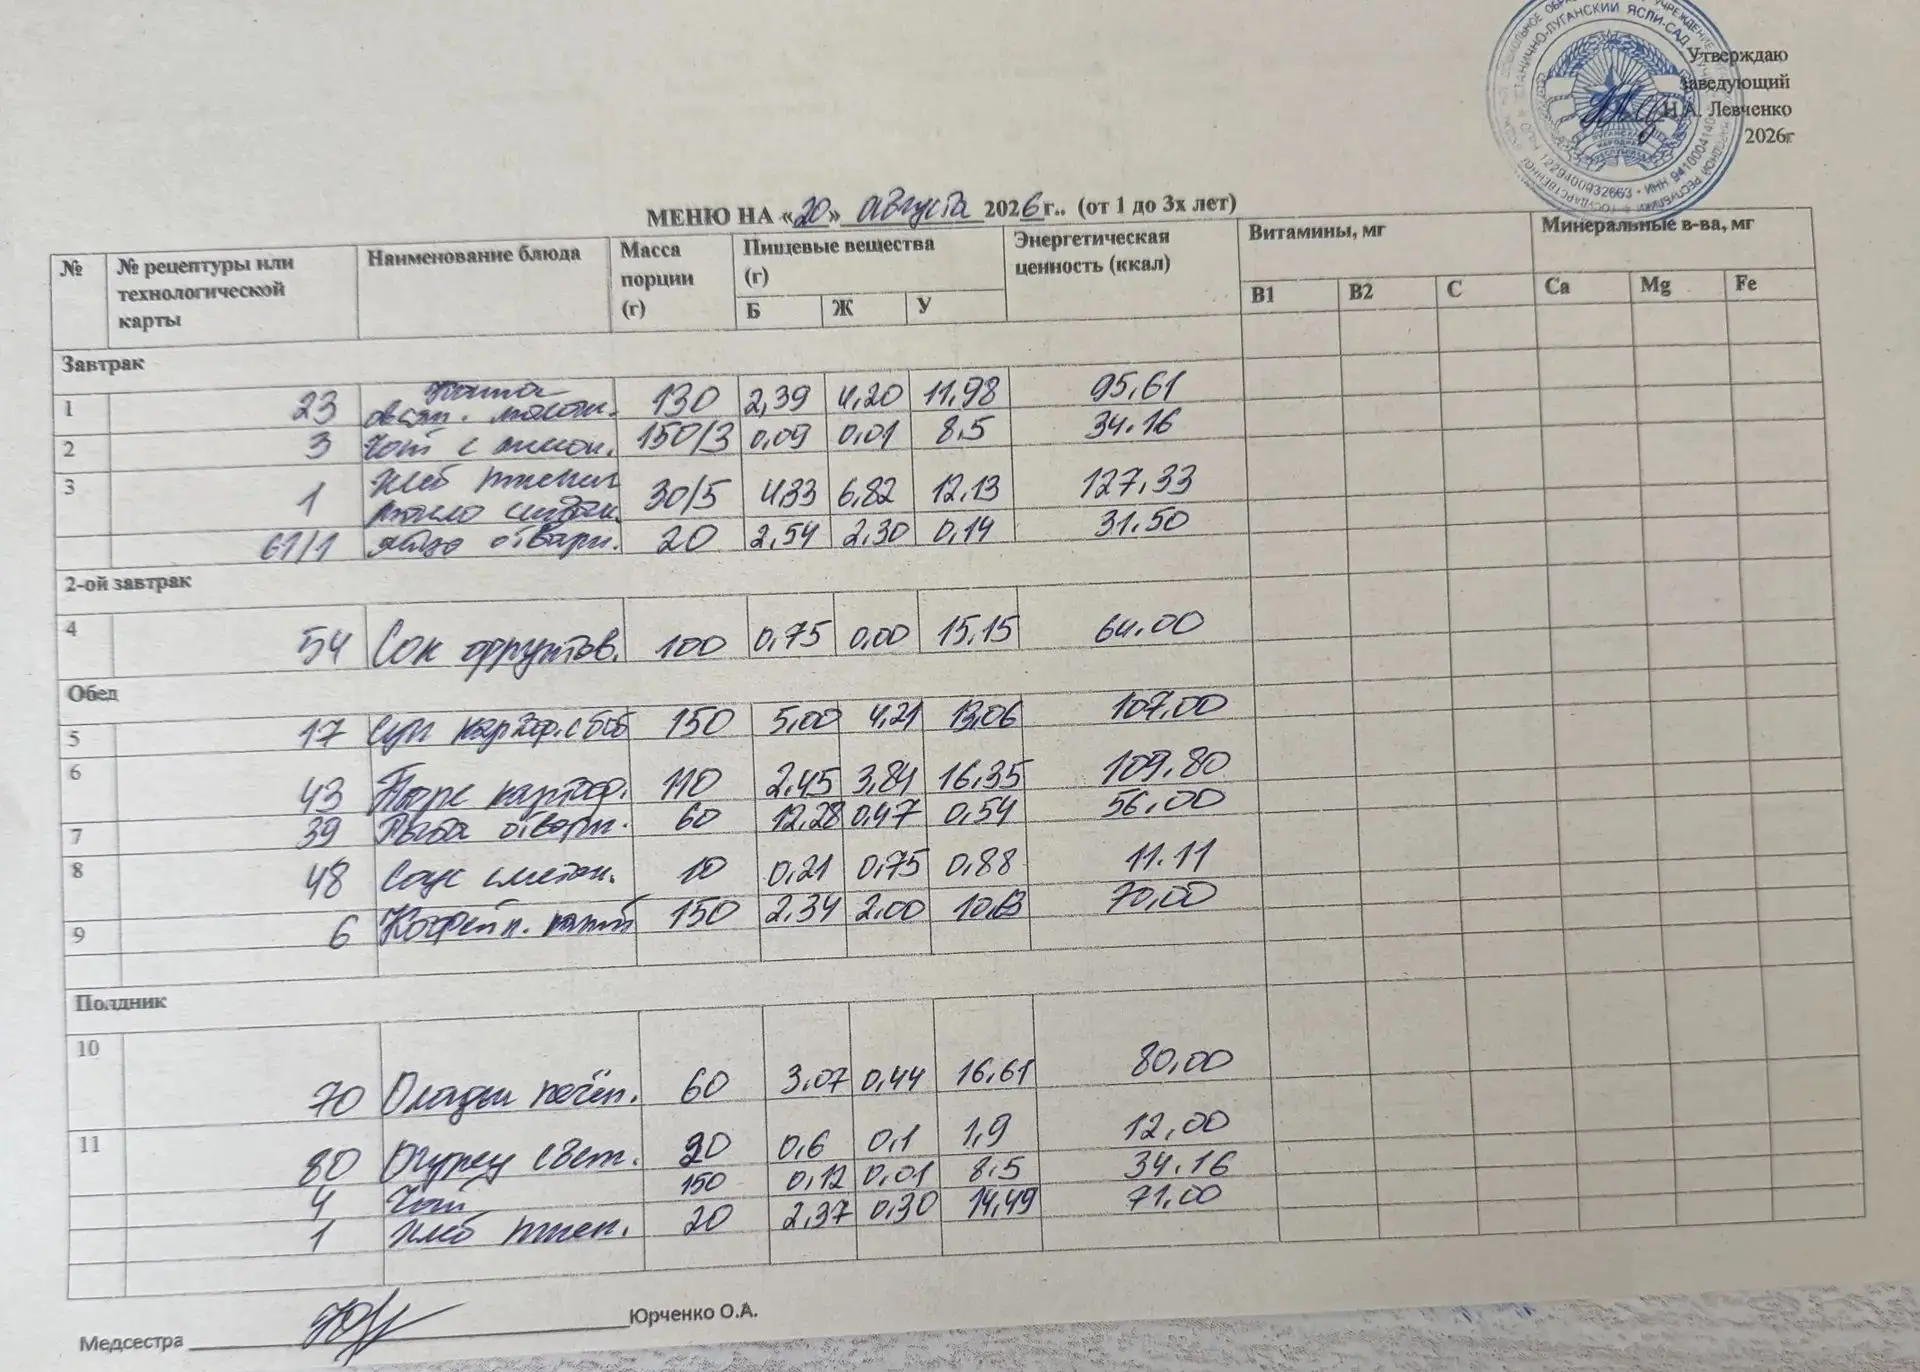 Утверждаю
заведующий
Н.А. Левченко
2026г
МЕНЮ НА «20» августа 2026г.. (от 1 до 3х лет)
№ № рецептуры или технологической карты Наименование блюда Масса порции (г) Пищевые вещества (г) Энергетическая ценность (ккал) Витамины, мг Минеральные в-ва, мг
Б Ж У B1 B2 C Ca Mg Fe
Завтрак
1 23 Каша овсян. молоч. 130 2,39 4,20 11,98 95,61
2 3 Чай с лимон. 150/3 0,09 0,01 8,5 34.16
3 1 Хлеб пшенич масло сливоч. 30/5 4,33 6,82 12,13 127,33
61/1 яйцо отварн. 20 2,54 2,30 0,14 31.50
2-ой завтрак
4 54 Сок фруктов. 100 0,75 0,00 15,15 64.00
Обед
5 17 Суп картоф. с боб 150 5,00 4,21 13,06 107,00
6 43 Пюре картоф. 110 2,45 3,84 16,35 109.80
7 39 Рыба отварн. 60 12,28 0,47 0,54 56,00
8 48 Соус сметан. 10 0,21 0,75 0,88 11.11
9 6 Кофейн. напит 150 2,34 2,00 70,00
Полдник
10 70 Оладьи печён. 60 3,07 0,44 16,61 80,00
11 80 Огурец свеж. 0,6 0,1 1,9 12,00
4 Чай 150 0,12 0,01 8,5 34.16
1 Хлеб пшен. 20 2,37 0,30 14,49 71,00
Медсестра Юрченко О.А.